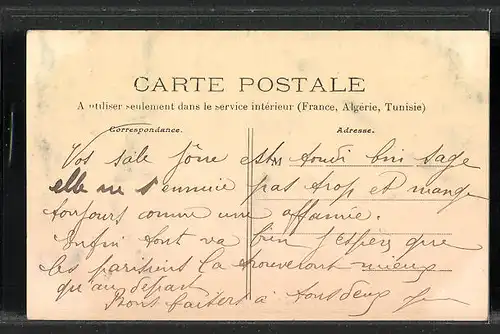 CARTE POSTALE
A utiliser seulement dans le service intérieur (France, Algérie, Tunisie)
Correspondance.
Adresse.
M
Vos est bien sage
elle ne s'ennuie pas trop et mange
toujours comme une affamée.
Enfin tout va bien j'espère que
les parisiens la trouveront mieux
qu'au départ
Bons baisers à tous deux